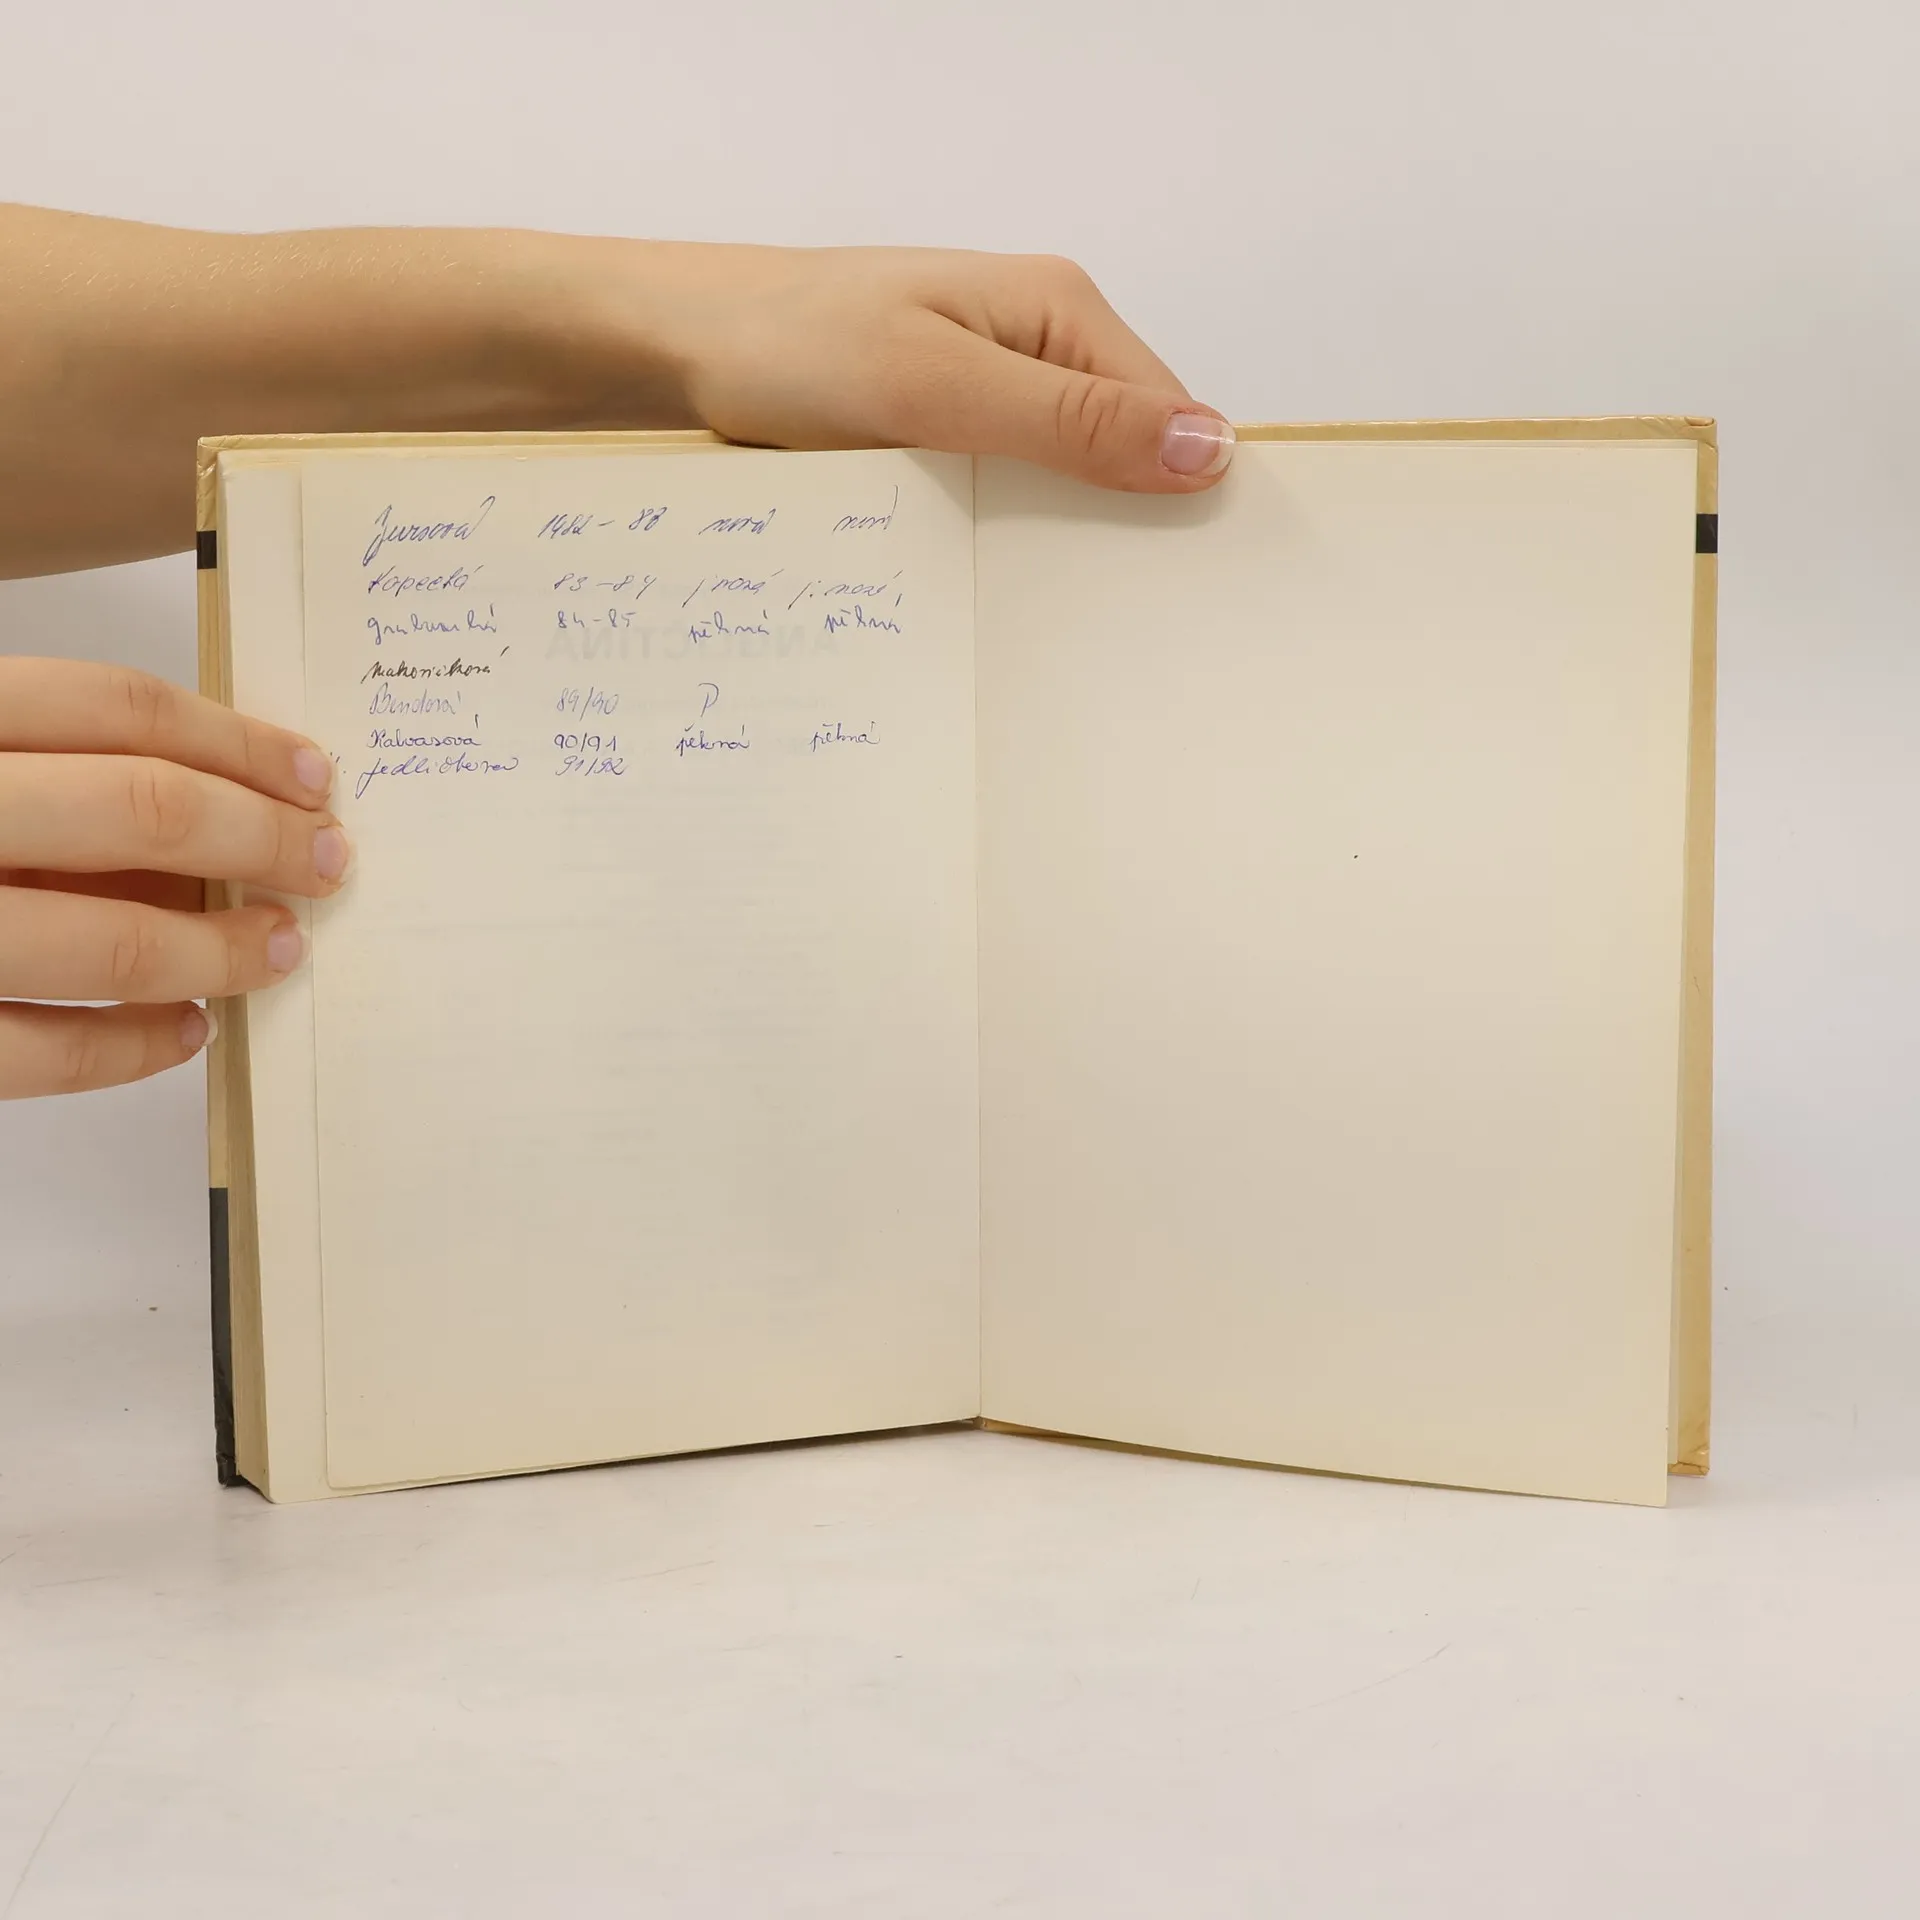 Jursová 1982 - 83 nová nová
Kopecká 83-84 j. nová j. nová
84-85 pěkná pěkná
Bendová 89/90 P
Kalvasová 90/91 pěkná pěkná
Jedličková 91/92
ANGLIČTINA